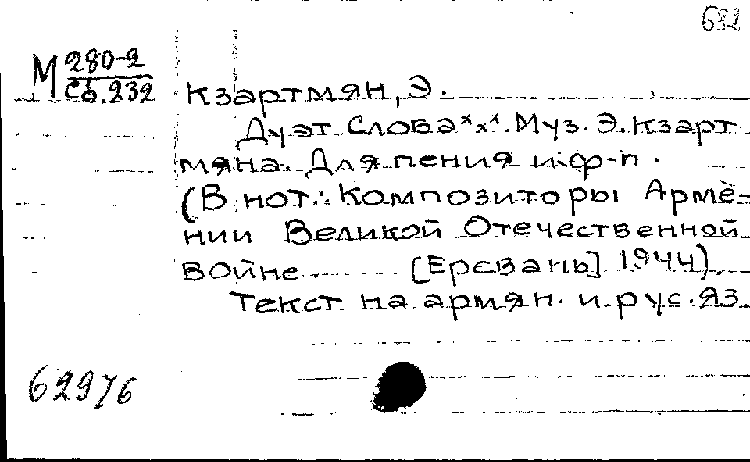 682
М 280-2
Сб.232
Кзартмян, Э.
Дуэт. Слова ˣ ₓ ˣ. Муз. Э. Кзарт
мяна. Для пения и ф-п.
(В нот.: Композиторы Арме-
нии Великой Отечественной
войне [Ереван] 1944)
Текст на армян. и рус. яз.
62976